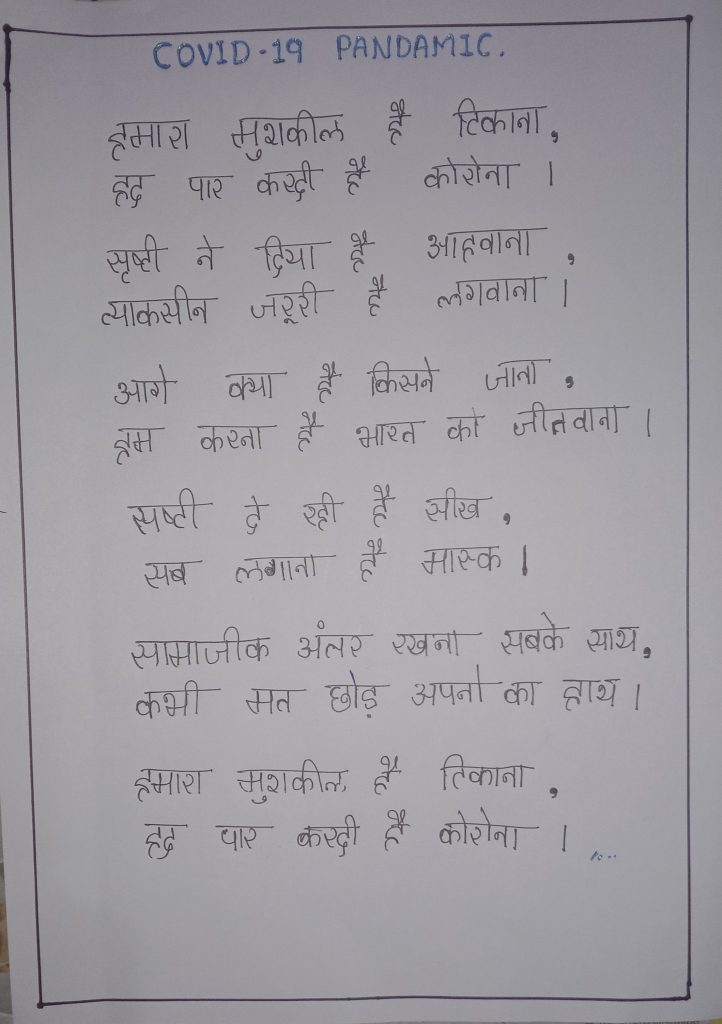 COVID-19 PANDAMIC.
हमारा मुशकील है टिकाना,
हद पार करदी है कोरोना ।
सृष्टी ने दिया है आहवाना,
त्याकसीन जरूरी है लगवाना ।
आगे क्या है किसने जाना,
हम करना है भारत को जीतवाना ।
सष्टी दे रही है सीख,
सब लगाना है मास्क ।
सामाजीक अंतर रखना सबके साथ,
कभी मत छोड़ अपनो का हाथ ।
हमारा मुशकील है टिकाना,
हद पार करदी है कोरोना ।